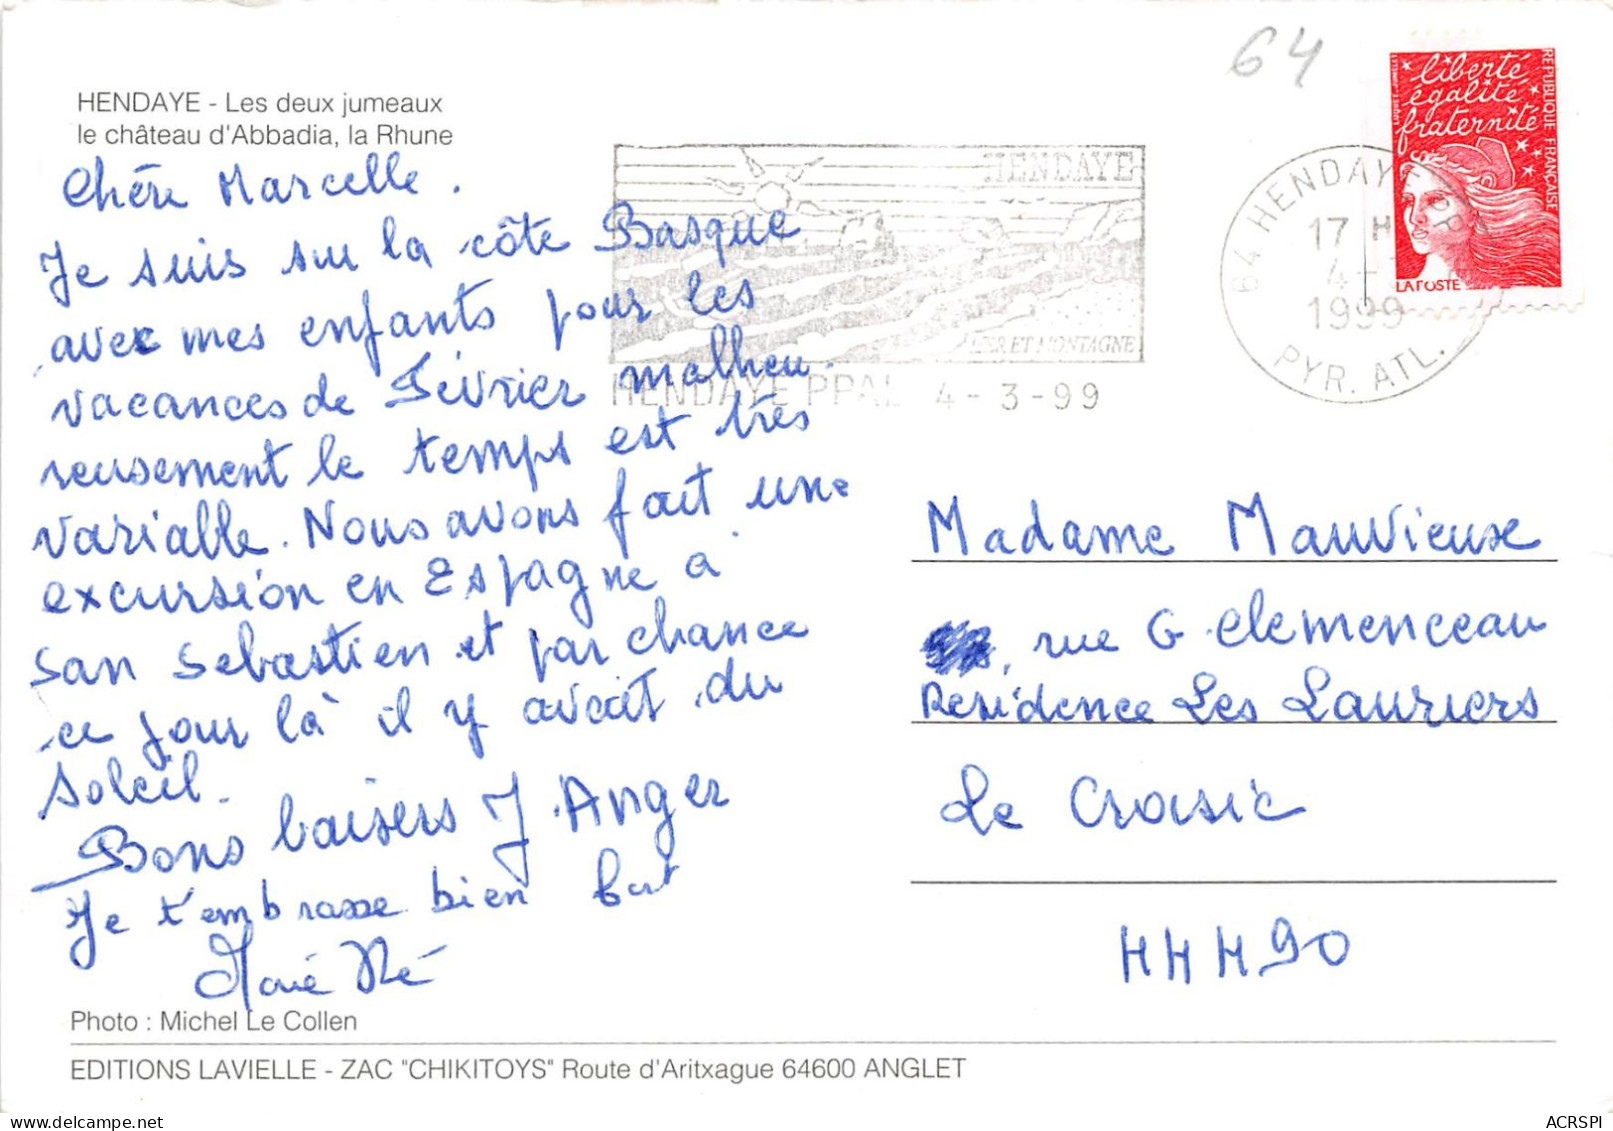 64
liberté
égalité
fraternité
RÉPUBLIQUE FRANÇAISE
LA POSTE
HENDAYE - Les deux jumeaux
le château d'Abbadia, la Rhune
HENDAYE
MER ET MONTAGNE
HENDAYE PPAL 4-3-99
64 HENDAYE PPAL
17 H
4-3
1999
PYR. ATL.
Chère Marcelle.
Je suis sur la côte Basque
avec mes enfants pour les
vacances de Février malheu.
reusement le temps est très
variable. Nous avons fait une
excursion en Espagne à
San Sebastien et par chance
ce jour là il y avait du
soleil.
Bons baisers J. Anger
Je t'embrasse bien fort
Madame Mauvieuse
, rue G. Clemenceau
Residence Les Lauriers
Le Croisic
44490
Photo : Michel Le Collen
EDITIONS LAVIELLE - ZAC "CHIKITOYS" Route d'Aritxague 64600 ANGLET
ACRSPI